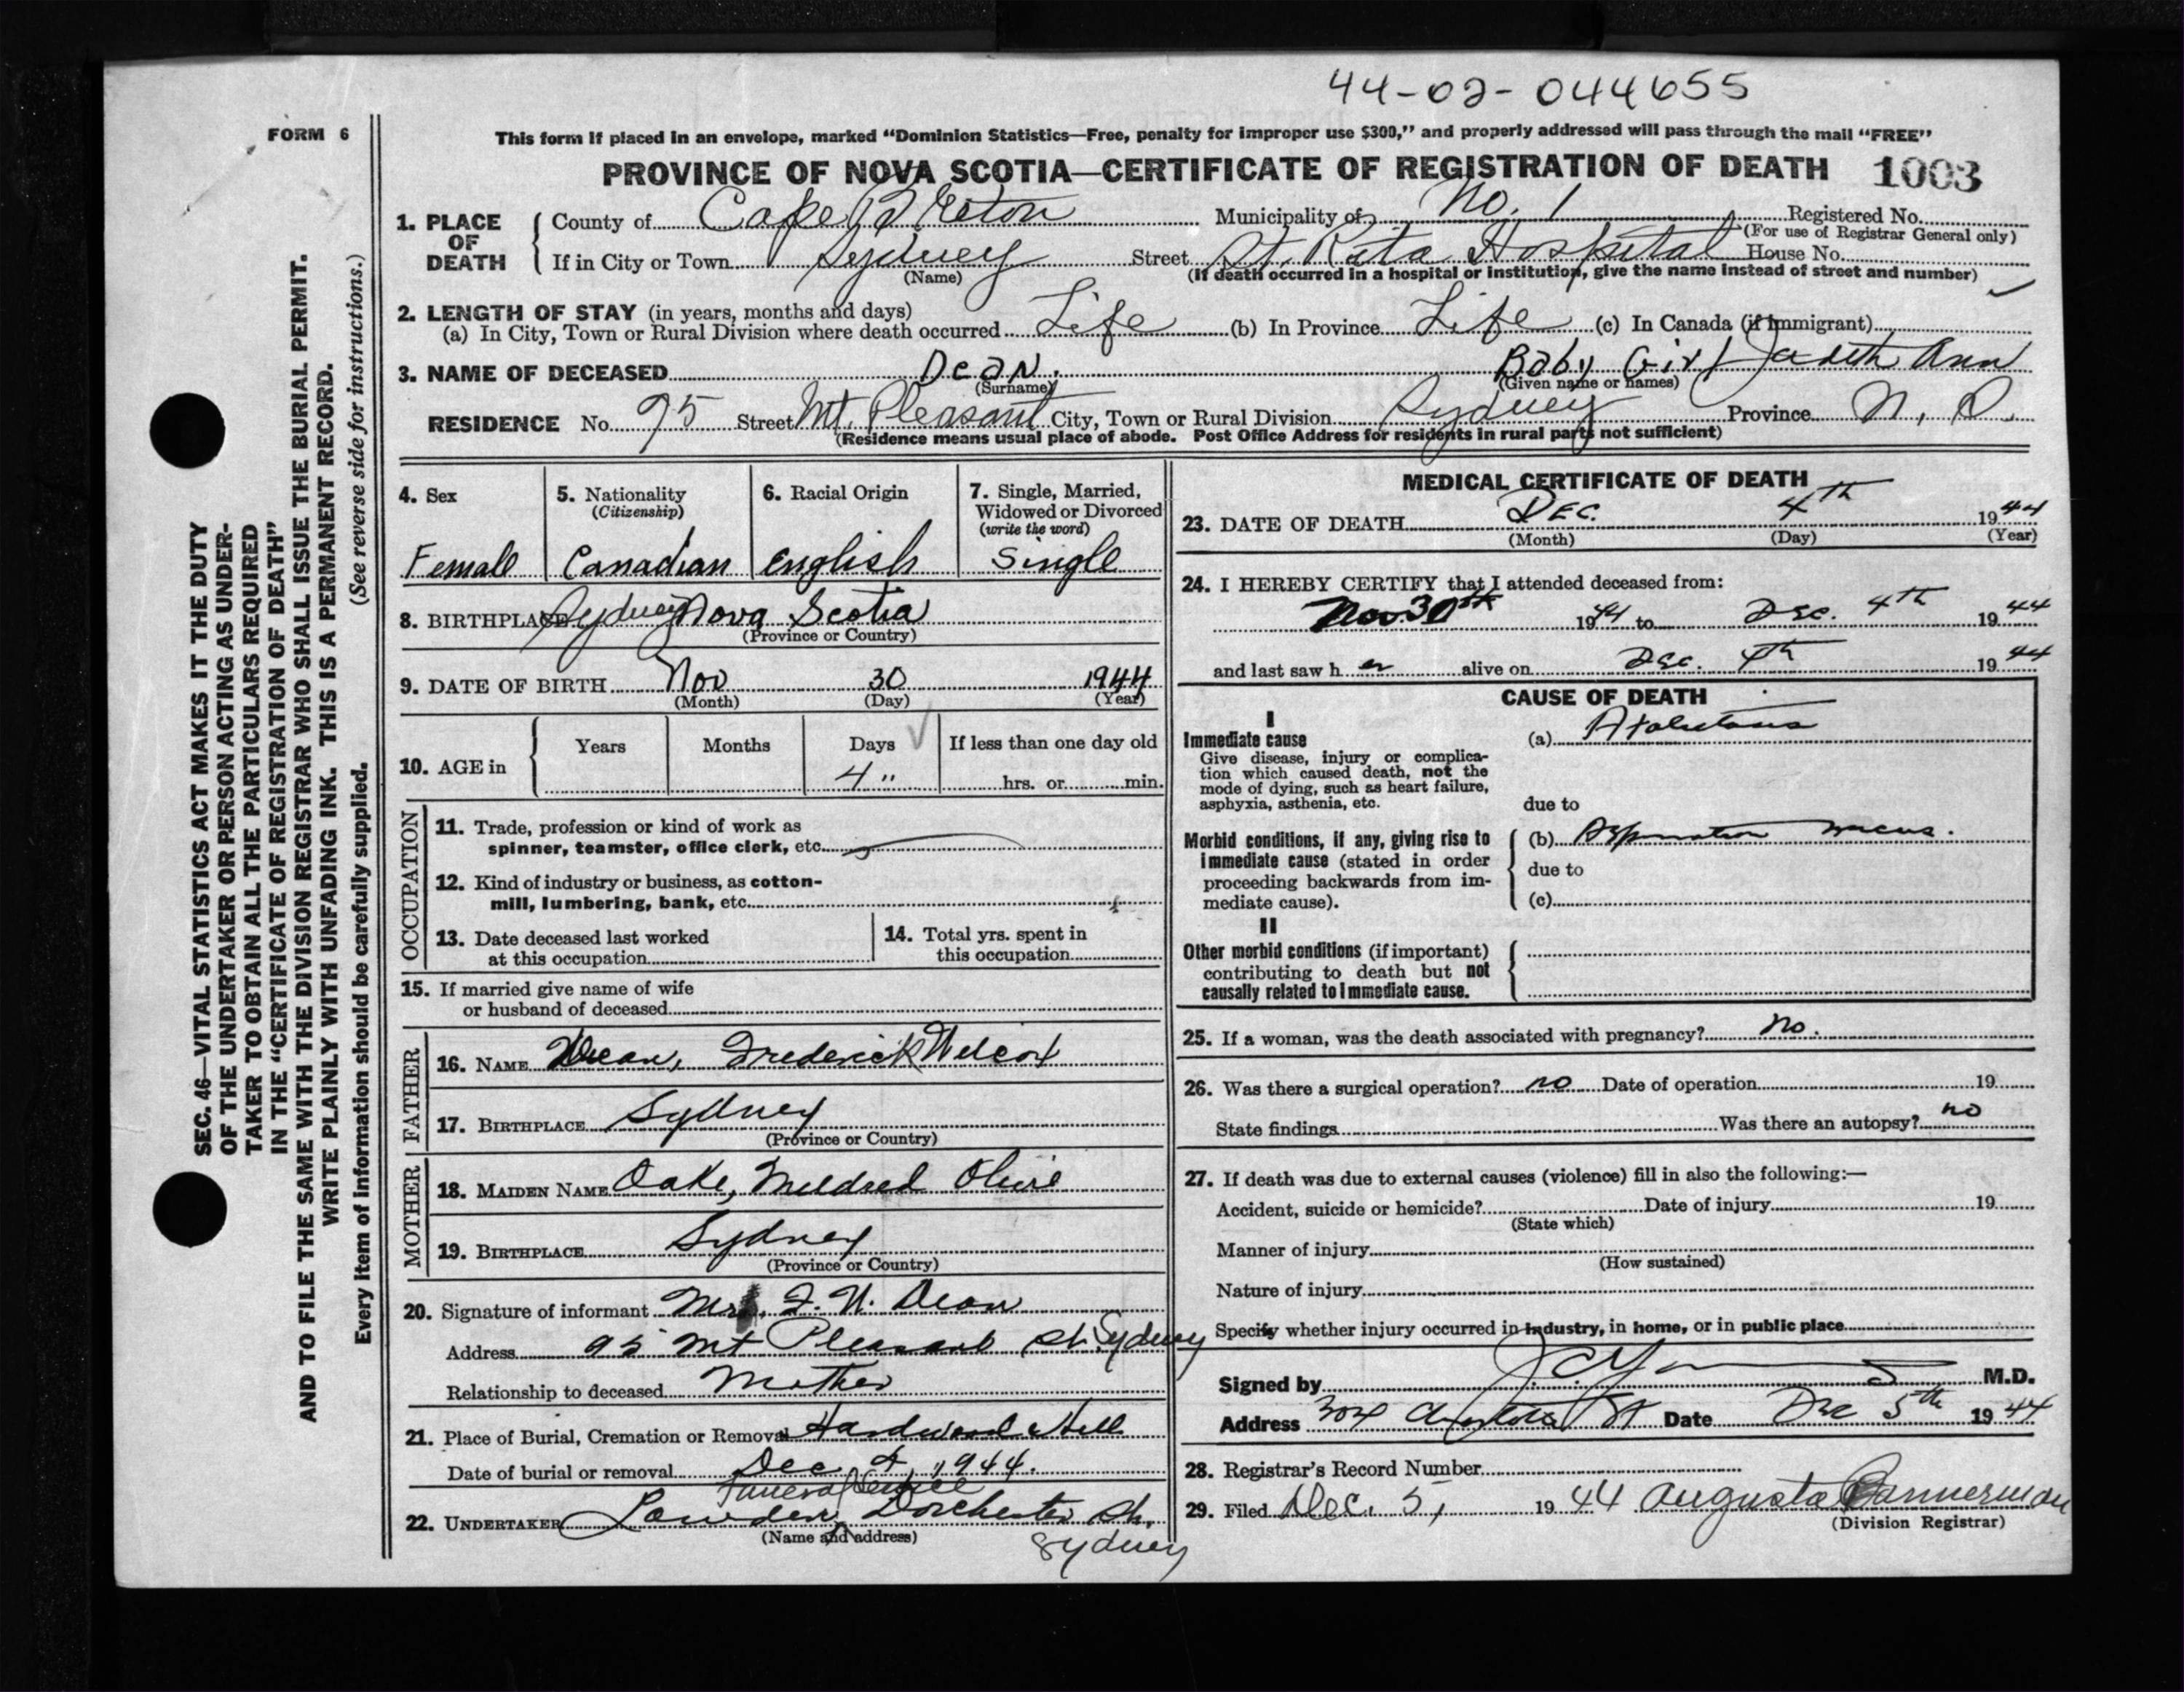 44-02-044655
FORM 6
This form if placed in an envelope, marked “Dominion Statistics—Free, penalty for improper use $300,” and properly addressed will pass through the mail “FREE”
PROVINCE OF NOVA SCOTIA—CERTIFICATE OF REGISTRATION OF DEATH 1003
1. PLACE OF DEATH
County of Cape Breton Municipality of No. 1 Registered No.
(For use of Registrar General only)
If in City or Town Sydney Street St. Rita Hospital House No.
(Name) (If death occurred in a hospital or institution, give the name instead of street and number)
2. LENGTH OF STAY (in years, months and days)
(a) In City, Town or Rural Division where death occurred Life (b) In Province Life (c) In Canada (if immigrant)
3. NAME OF DECEASED Dean. Baby Girl Judith Ann
(Surname) (Given name or names)
RESIDENCE No. 95 Street Mt. Pleasant City, Town or Rural Division Sydney Province N. S.
(Residence means usual place of abode. Post Office Address for residents in rural parts not sufficient)
4. Sex
Female
5. Nationality
(Citizenship)
Canadian
6. Racial Origin
English
7. Single, Married,
Widowed or Divorced
(write the word)
Single
8. BIRTHPLACE Sydney Nova Scotia
(Province or Country)
9. DATE OF BIRTH Nov 30 1944
(Month) (Day) (Year)
10. AGE in
Years Months Days If less than one day old
4 " hrs. or min.
OCCUPATION
11. Trade, profession or kind of work as
spinner, teamster, office clerk, etc.
12. Kind of industry or business, as cotton-
mill, lumbering, bank, etc.
13. Date deceased last worked
at this occupation
14. Total yrs. spent in
this occupation
15. If married give name of wife
or husband of deceased
FATHER
16. NAME Dean, Frederick Wilcox
17. BIRTHPLACE Sydney
(Province or Country)
MOTHER
18. MAIDEN NAME Oake, Mildred Olive
19. BIRTHPLACE Sydney
(Province or Country)
20. Signature of informant Mrs. F. W. Dean
Address 95 Mt Pleasant St. Sydney
Relationship to deceased Mother
21. Place of Burial, Cremation or Removal Hardwood Hill
Date of burial or removal Dec 1944.
Funeral Service
22. UNDERTAKER Lowden Dorchester St.
(Name and address)
Sydney
MEDICAL CERTIFICATE OF DEATH
23. DATE OF DEATH DEC. 4th 1944
(Month) (Day) (Year)
24. I HEREBY CERTIFY that I attended deceased from:
Nov. 30th 1944 to Dec. 4th 1944
and last saw her alive on Dec. 4th 1944
CAUSE OF DEATH
I
Immediate cause
Give disease, injury or complica-
tion which caused death, not the
mode of dying, such as heart failure,
asphyxia, asthenia, etc.
(a) Atelectasis
due to
Morbid conditions, if any, giving rise to
immediate cause (stated in order
proceeding backwards from im-
mediate cause).
(b) Aspiration mucus.
due to
(c)
II
Other morbid conditions (if important)
contributing to death but not
causally related to immediate cause.
25. If a woman, was the death associated with pregnancy? no.
26. Was there a surgical operation? no Date of operation 19
State findings Was there an autopsy? no
27. If death was due to external causes (violence) fill in also the following:—
Accident, suicide or homicide? Date of injury 19
(State which)
Manner of injury
(How sustained)
Nature of injury
Specify whether injury occurred in industry, in home, or in public place
Signed by J. C. M.D.
Address Date Dec 5th 1944
28. Registrar's Record Number
29. Filed Dec. 5, 1944 Augusta Bannerman
(Division Registrar)
SEC. 46—VITAL STATISTICS ACT MAKES IT THE DUTY
OF THE UNDERTAKER OR PERSON ACTING AS UNDER-
TAKER TO OBTAIN ALL THE PARTICULARS REQUIRED
IN THE “CERTIFICATE OF REGISTRATION OF DEATH”
AND TO FILE THE SAME WITH THE DIVISION REGISTRAR WHO SHALL ISSUE THE BURIAL PERMIT.
WRITE PLAINLY WITH UNFADING INK. THIS IS A PERMANENT RECORD.
Every item of information should be carefully supplied. (See reverse side for instructions.)